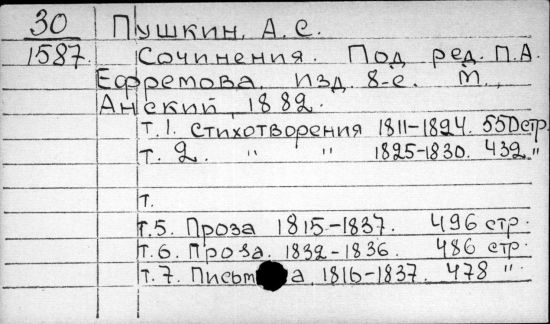 30 Пушкин, А.С.
1587. Сочинения. Под ред. П.А.
Ефремова. Изд. 8-е. М.,
Анский, 1882.
т.1. Стихотворения 1811-1824. 550стр.
т.2. " " 1825-1830. 432 "
т.
т.5. Проза 1815-1837. 496 стр.
т.6. Проза. 1832-1836. 486 стр.
т.7. Письма 1816-1837. 478 "